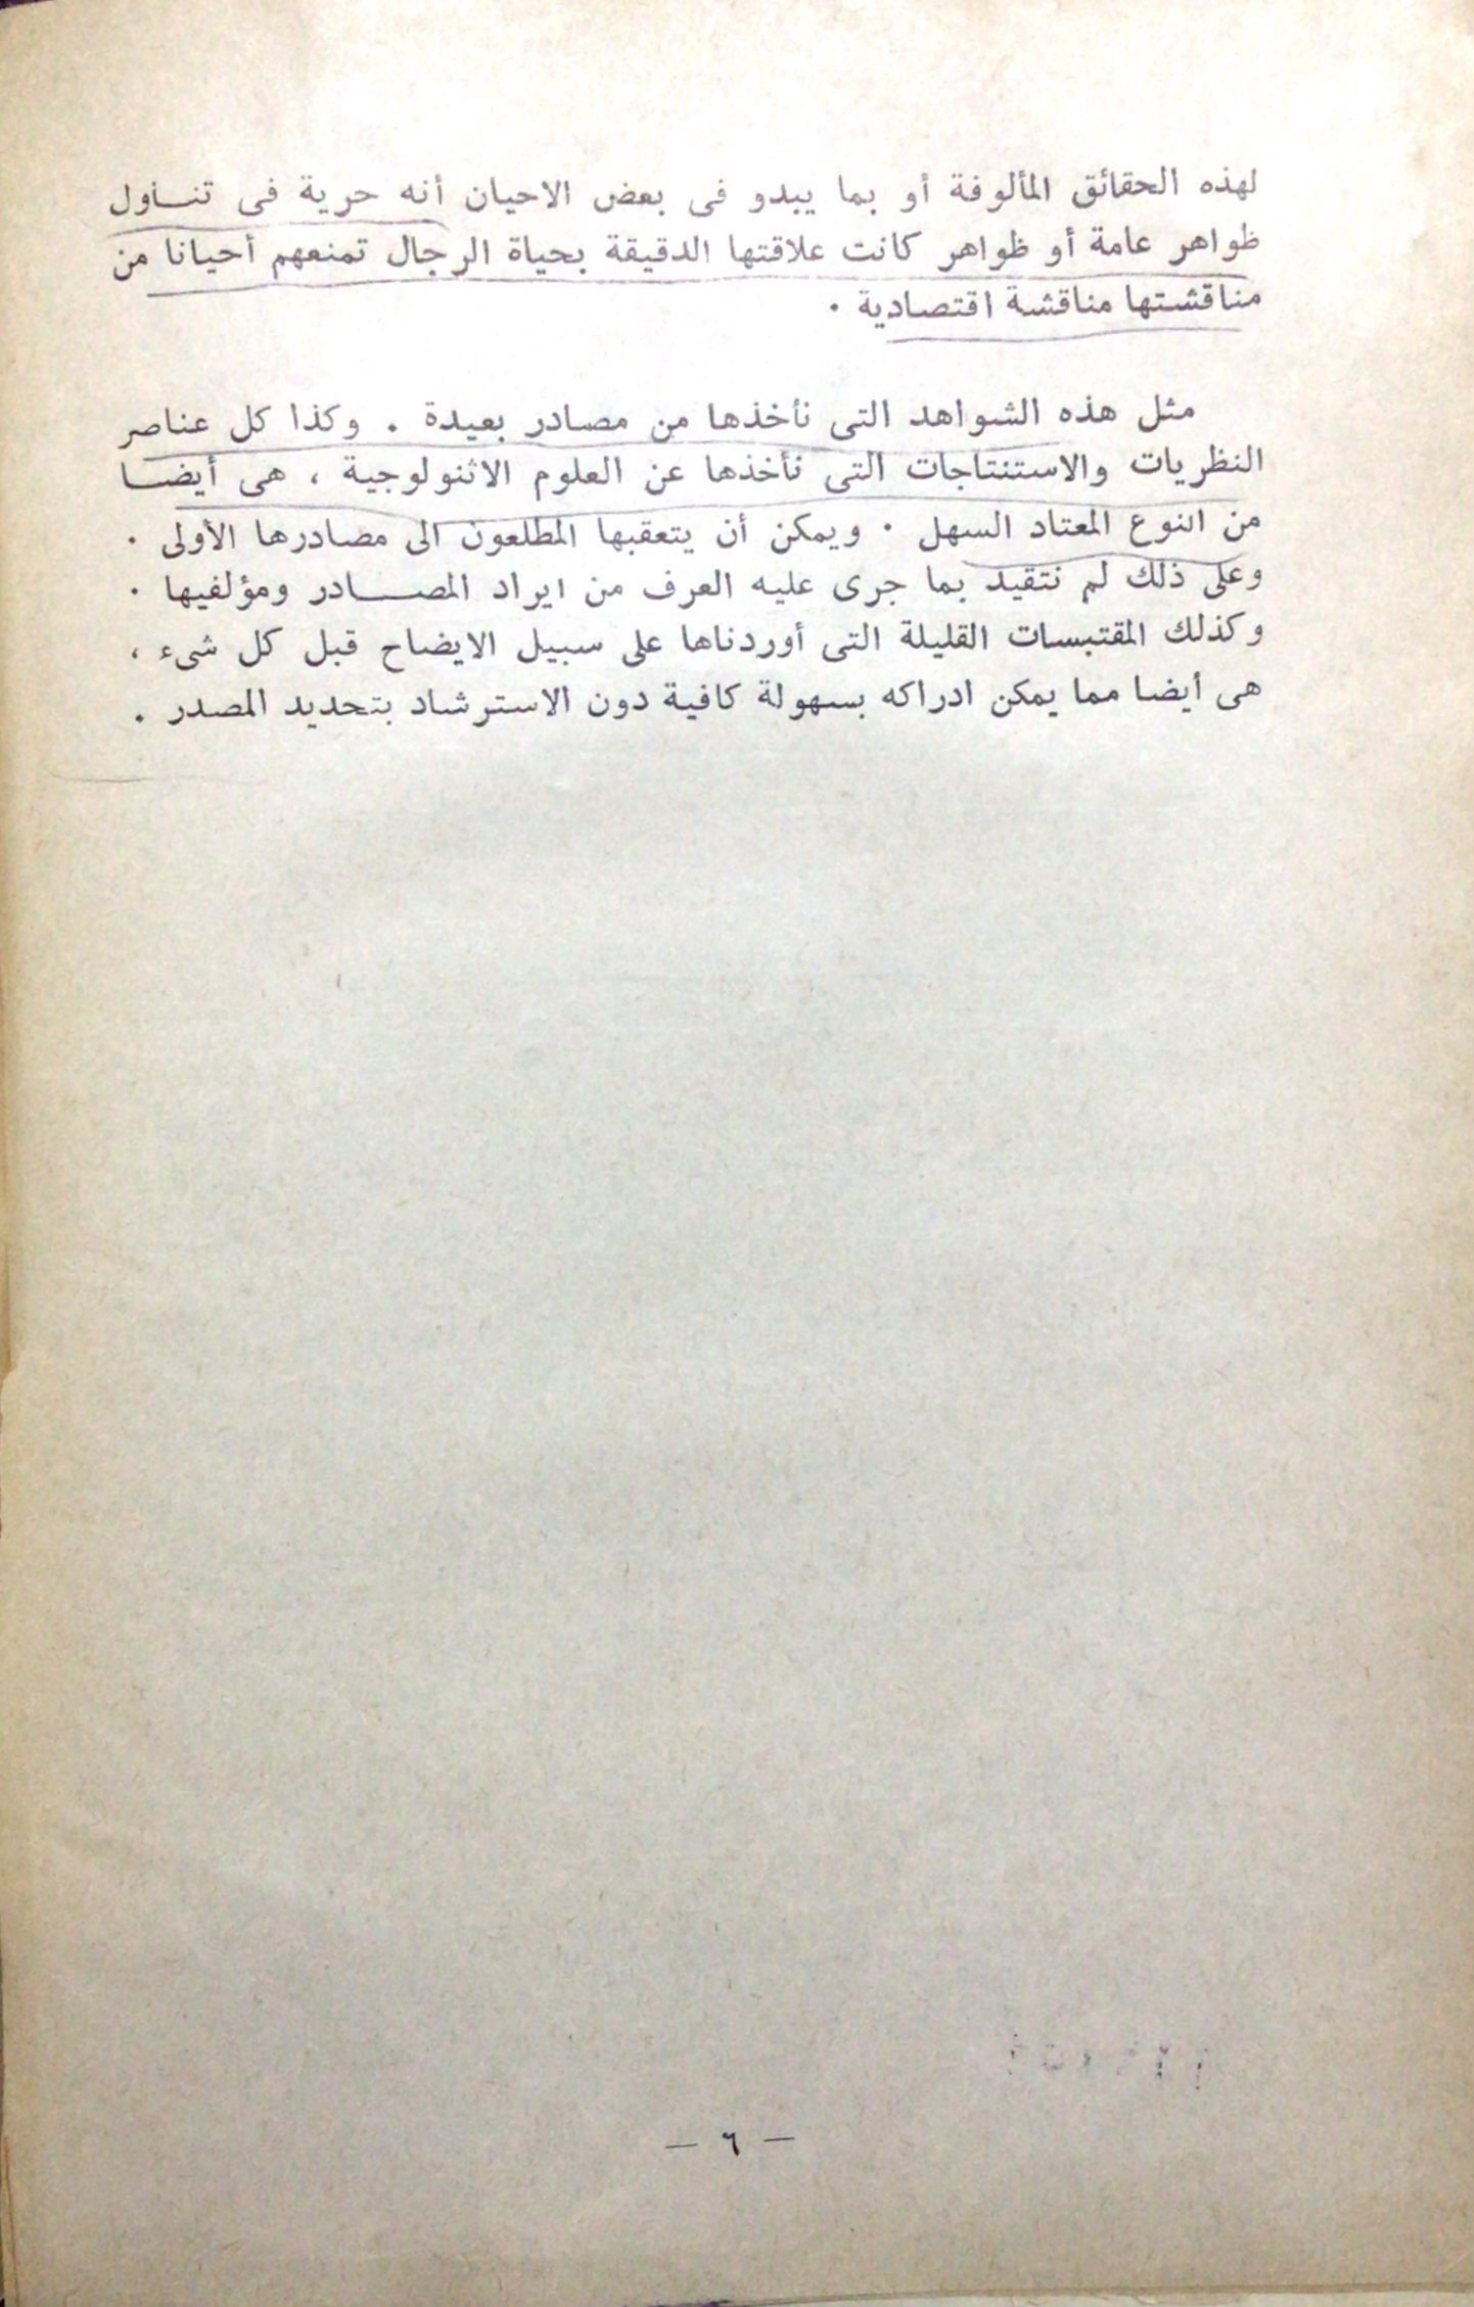 لهذه الحقائق المألوفة أو بما يبدو فى بعض الاحيان أنه حرية فى تنـاول
ظواهر عامة أو ظواهر كانت علاقتها الدقيقة بحياة الرجال تمنعهم أحيانا من
مناقشتها مناقشة اقتصادية .
مثل هذه الشواهد التى نأخذها من مصادر بعيدة . وكذا كل عناصر
النظريات والاستنتاجات التى نأخذها عن العلوم الاثنولوجية ، هى أيضـا
من النوع المعتاد السهل . ويمكن أن يتعقبها المطلعون الى مصادرها الأولى .
وعلى ذلك لم نتقيد بما جرى عليه العرف من ايراد المصـــادر ومؤلفيها .
وكذلك المقتبسات القليلة التى أوردناها على سبيل الايضاح قبل كل شىء ،
هى أيضا مما يمكن ادراكه بسهولة كافية دون الاسترشاد بتحديد المصدر .
— ٦ —